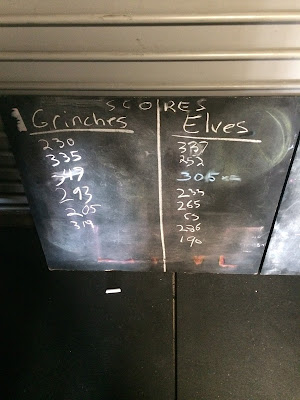 SCORES
Grinches
230
335
317
293
205
319
Elves
337
252
305
235
265
53
236
190